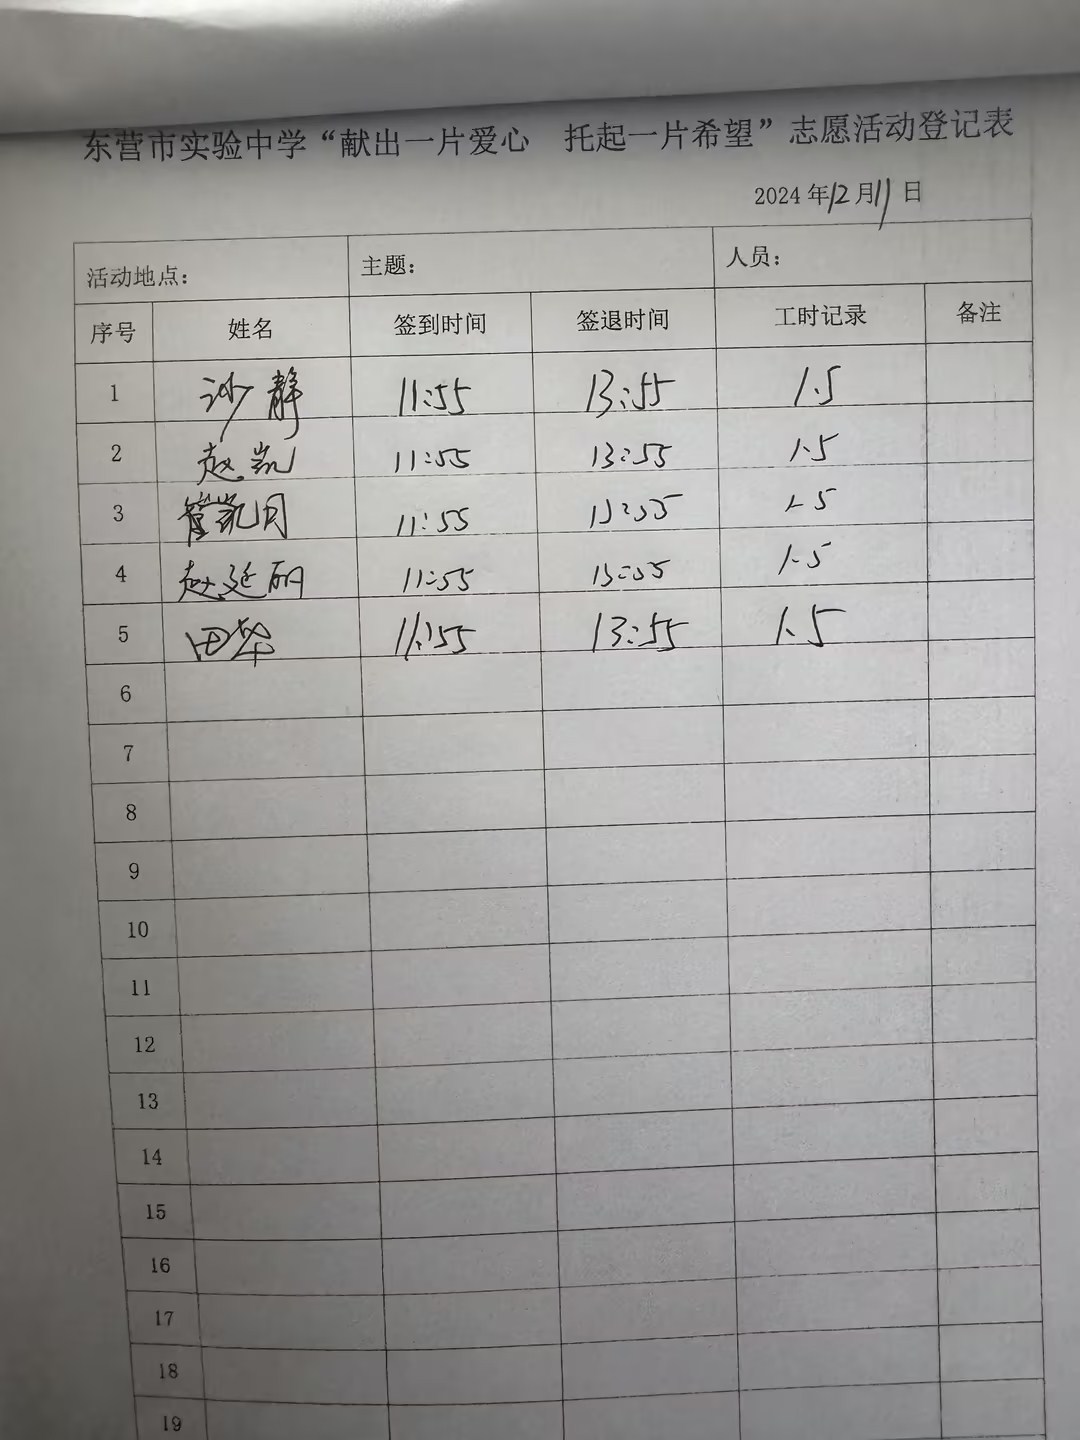 东营市实验中学“献出一片爱心 托起一片希望”志愿活动登记表
2024年12月11日
活动地点： 主题： 人员：
序号 姓名 签到时间 签退时间 工时记录 备注
1 沙静 11:55 13:55 1.5
2 赵凯 11:55 13:55 1.5
3 管凯月 11:55 13:55 1.5
4 赵延丽 11:55 13:55 1.5
5 田华 11:55 13:55 1.5
6
7
8
9
10
11
12
13
14
15
16
17
18
19